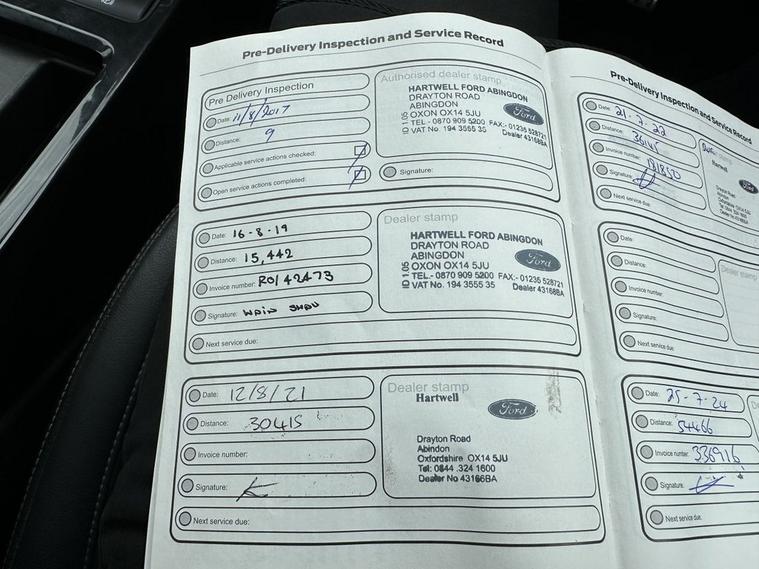 Pre-Delivery Inspection and Service Record
Pre Delivery Inspection
Date: 11/8/2017
Distance: 9
Applicable service actions checked:
Open service actions completed:
Authorised dealer stamp
HARTWELL FORD ABINGDON
DRAYTON ROAD
ABINGDON
OXON OX14 5JU
TEL.- 0870 909 5200 FAX:- 01235 528721
VAT No. 194 3555 35 Dealer 43168BA
ID 1.05
Ford
Signature:
Date: 16-8-19
Distance: 15,442
Invoice number: RO142473
Signature: WAIN SHAW
Next service due:
Dealer stamp
HARTWELL FORD ABINGDON
DRAYTON ROAD
ABINGDON
OXON OX14 5JU
TEL.- 0870 909 5200 FAX:- 01235 528721
VAT No. 194 3555 35 Dealer 43168BA
ID 1.05
Ford
Date: 12/8/21
Distance: 30415
Invoice number:
Signature:
Next service due:
Dealer stamp
Hartwell
Ford
Drayton Road
Abindon
Oxfordshire OX14 5JU
Tel: 0844 .324 1600
Dealer No 43166BA
Pre-Delivery Inspection and Service Record
Date: 21-2-22
Distance: 36145
Invoice number: 181850
Signature:
Next service due:
Hartwell
Drayton Road
Date:
Distance:
Invoice number:
Signature:
Next service due:
Dealer stamp
Date: 25-7-24
Distance: 54466
Invoice number: 336916
Signature:
Next service due: